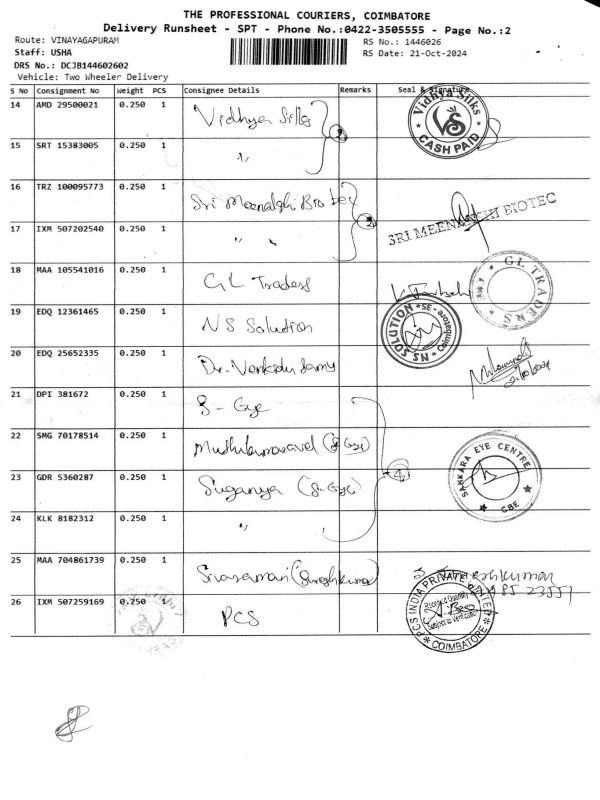 THE PROFESSIONAL COURIERS, COIMBATORE
Delivery Runsheet - SPT - Phone No.:0422-3505555 - Page No.:2
Route: VINAYAGAPURAM
RS No.: 1446026
Staff: USHA
RS Date: 21-Oct-2024
DRS No.: DCJB144602602
Vehicle: Two Wheeler Delivery
S No Consignment No Weight PCS Consignee Details Remarks Seal & Signature
14 AMD 29500021 0.250 1 Vidhya Silks
Vidhya Silks VS CASH PAID
15 SRT 15383005 0.250 1 "
16 TRZ 100095773 0.250 1 Sri Meenakshi Bio tec
SRI MEENAKSHI BIOTEC
17 IXM 507202540 0.250 1 " "
18 MAA 105541016 0.250 1 GL Traders
GL TRADERS
19 EDQ 12361465 0.250 1 NS Solution
NS SOLUTION Coimbatore
20 EDQ 25652335 0.250 1 Dr. Venkadu Samy
21 DPI 381672 0.250 1 S - Eye
22 SMG 70178514 0.250 1 Muthukumaravel (S. Eye)
SANKARA EYE CENTRE CBE
23 GDR 5360287 0.250 1 Suganya (S. Eye)
24 KLK 8182312 0.250 1 "
25 MAA 704861739 0.250 1
26 IXM 507259169 0.250 1 PCS
PCS INDIA PRIVATE LIMITED
Subject to Verification
COIMBATORE